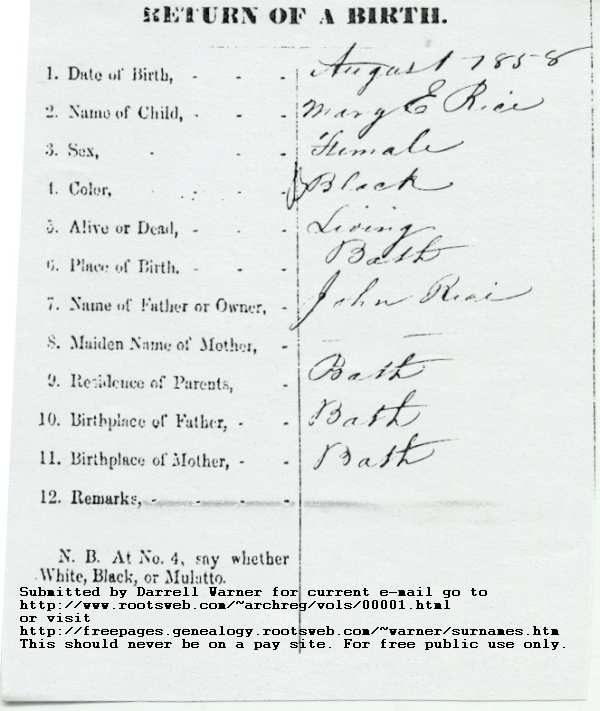 RETURN OF A BIRTH.
1. Date of Birth, - - - August 1858
2. Name of Child, - - - Mary E Rice
3. Sex, - - - Female
4. Color, - - - Black
5. Alive or Dead, - - - Living
6. Place of Birth. - - - Bath
7. Name of Father or Owner, - John Rice
8. Maiden Name of Mother, - — —
9. Residence of Parents, - Bath
10. Birthplace of Father, - - Bath
11. Birthplace of Mother, - - Bath
12. Remarks, - - - -
N. B. At No. 4, say whether
White, Black, or Mulatto.
Submitted by Darrell Warner for current e-mail go to
http://www.rootsweb.com/~archreg/vols/00001.html
or visit
http://freepages.genealogy.rootsweb.com/~warner/surnames.htm
This should never be on a pay site. For free public use only.